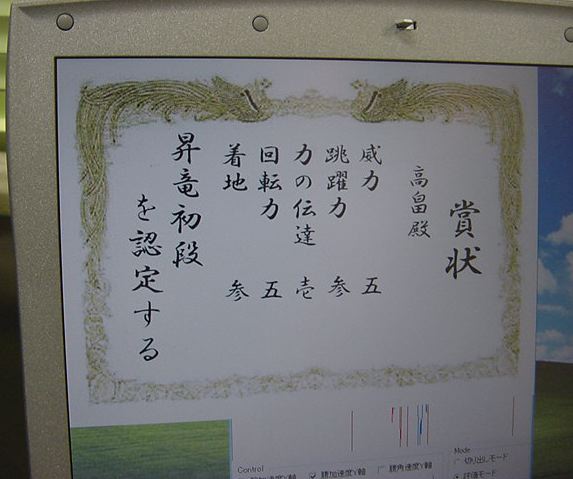 賞状
高畠殿
威力 五
跳躍力 参
力の伝達 壱
回転力 五
着地 参
昇竜初段
を認定する
Control
Mode
切り出しモード
評価モード